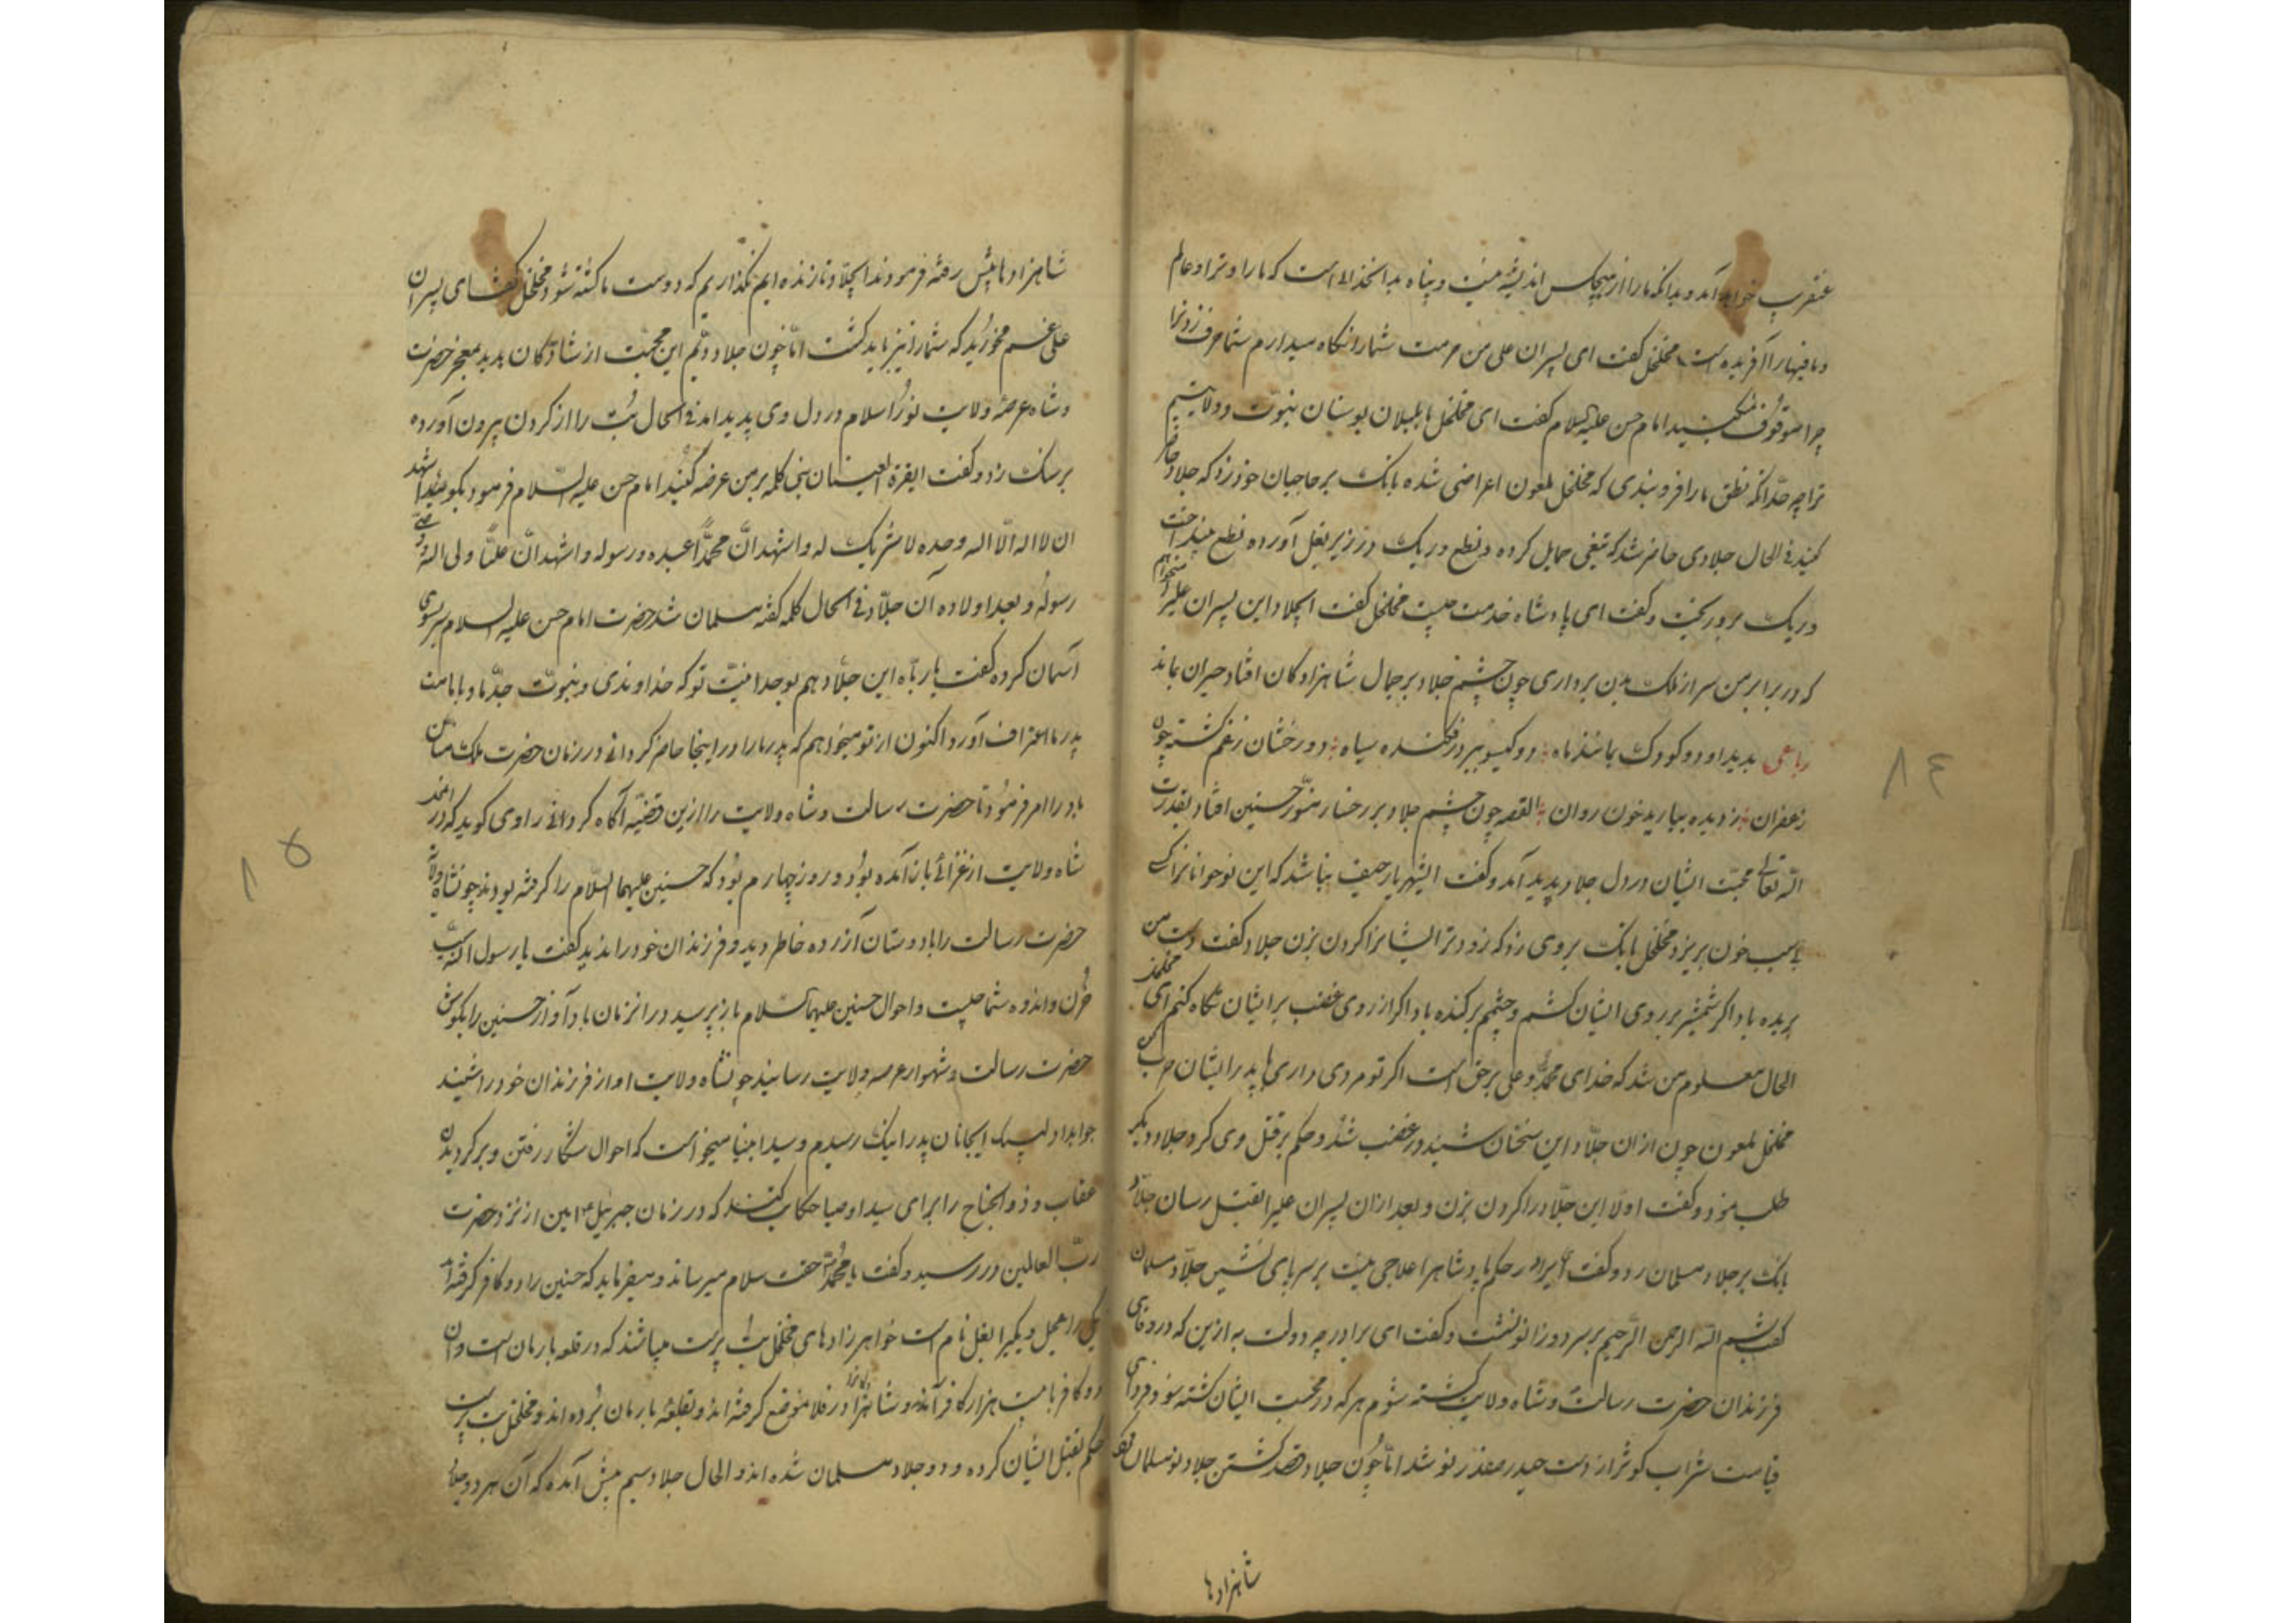 عنقریب خواهد آمد و بدانکه ما را از هیچکس اندیشه نیست و پناه بدانخدائی است که ما را و ترا و عالم
و مافیها را آفریده است مخلخل گفت ای پسران علی من حرمت شما را نگاه میدارم شما حرف زدنرا
چرا موقوف نمیکنید امام حسن علیه السلام گفت ای مخلخل ما بلبلان بوستان نبوت و ولایتیم
ترا چه حد آنکه نطق ما را فرو بندی که مخلخل ملعون اعراضی شده بانک بر حاجبان خود زد که جلاد حاضر
کنید فی الحال جلادی حاضر شد که تیغی حمایل کرده و نطع و ریک در زیر بغل آورده نطع بینداخت
و ریک برو ریخت و گفت ای پادشاه خدمت چیست مخلخل گفت ایجلاد این پسران علیرا میخواهم
که در برابر من سر از ملک بدن برداری چون چشم جلاد بر جمال شاهزادگان افتاد حیران بماند
رباعی بدید او دو کودک بمانند ماه دو کیسو ببر در فکنده سیاه دو رخشان ز غم گشته چون
زعفران ز دیده ببارید خون روان القصه چون چشم جلاد بر رخسار منور حسنین افتاد بقدرت
الله تعالی محبت ایشان در دل جلاد پدید آمد و گفت ایشهریار حیف نباشد که این نوجوانانرا کسی
بی سبب خون بریزد مخلخل بانک بر وی زد که زودتر ایشانرا کردن بزن جلاد گفت دست من
بریده باد اگر شمشیر بر روی ایشان کشم و چشمم برکنده باد اگر از روی غضب بر ایشان نگاه کنم ای مخلخل
الحال معلوم من شد که خدای محمد و علی بر حق است اگر تو مردی داری با پدر ایشان حرب کن
مخلخل ملعون چون از ان جلاد این سخنان شنید در غضب شد و حکم بر قتل وی کرد و جلاد دیگر
طلب نمود و گفت اولا این جلاد را کردن بزن و بعد ازان پسران علیرا بقتل رسان جلاد
بانک بر جلاد مسلمان زد و گفت ای برادر حکم پادشاهرا علاجی نیست بر سر پای نشین جلاد مسلمان
گفت بسم الله الرحمن الرحیم بر سر دو زانو نشست و گفت ای برادر چه دولت به ازین که در وفای
فرزندان حضرت رسالت و شاه ولایت کشته شوم هر که در محبت ایشان کشته شود فردای
قیامت شراب کوثر از دست حیدر صفدر نوشد اما چون جلاد قصد کشتن جلاد نو مسلمان نمود
شاهزادها
شاهزادها پیش رفته فرمودند ایجلاد تا زنده ایم نگذاریم که دوست ما کشته شود مخلخل گفت ای پسران
علی غم مخورید که شما را نیز باید کشت اما چون جلاد دویم این محبت از شاهزادگان بدید بمعجز حضرت
و شاه عرصه ولایت نور اسلام در دل وی پدید امد فی الحال بت را از کردن بیرون آورده
بر سنک زد و گفت ایقرة العینان نبی کلمه بر من عرضه کنید امام حسن علیه السلام فرمود بگوئید اشهد
ان لا اله الا الله وحده لا شریک له و اشهد ان محمدا عبده و رسوله و اشهد ان علیا ولی الله و وصی
رسوله و بعد اولاده آن جلاد فی الحال کلمه گفته مسلمان شد حضرت امام حسن علیه السلام سر بسوی
آسمان کرده گفت یا رباه این جلاد هم بوحدانیت تو که خداوندی و نبوت جد ما و بامامت
پدر ما اعتراف آورد اکنون از تو میخواهم که پدر ما را در اینجا حاضر کردانی در زمان حضرت ملک منان
باد را امر فرمود تا حضرت رسالت و شاه ولایت را ازین قضیه آگاه کرداند راوی گوید که در
شاه ولایت از غزائی باز آمده بود و روز چهارم بود که حسنین علیهما السلام را گرفته بودند چون شاه ولایت
حضرت رسالت را با دوستان آزرده خاطر دید و فرزندان خود را ندید گفت یا رسول الله سبب
حزن و اندوه شما چیست و احوال حسنین علیهما السلام باز پرسید در انزمان باد آواز حسنین را بگوش
حضرت رسالت و شهسوار عرصه ولایت رسانید چون شاه ولایت اواز فرزندان خود را شنید
جواب داد لبیک ایجانان پدر اینک رسیدم و سید انبیا میخواست که احوال شکار رفتن و بر کردیدن
عقاب و ذو الجناح را برای سید اوصیا حکایت کند که در زمان جبرئیل امین از نزد حضرت
رب العالمین در رسید و گفت یا محمد حقت سلام میرساند و میفرماید که حسنین را دو کافر گرفته اند
یکی را عجل و یکیرا بغل نام است خواهر زادهای مخلخل بت پرست میباشند که در قلعه بارمان است و آن
دو کافر با بیست هزار کافر آمدند و شاهزادها را در فلان موضع گرفته اند و بقلعه بارمان برده اند و مخلخل بت پرست
حکم بقتل ایشان کرده و دو جلاد مسلمان شده اند و الحال جلاد سیم پیش آمده که آن هر دو جلاد
۸۴
۸۵